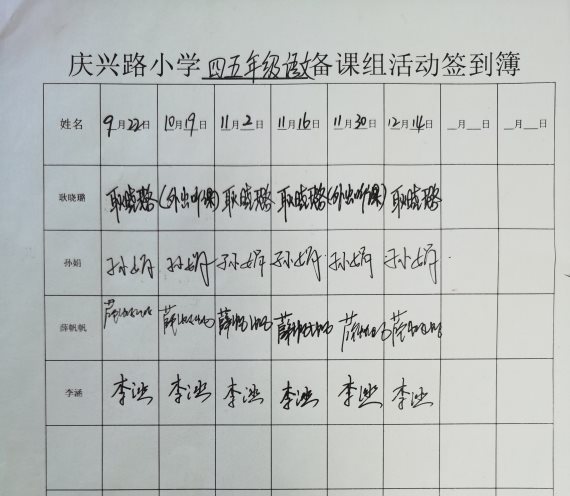 庆兴路小学四五年级语文备课组活动签到簿
姓名 9月22日 10月19日 11月2日 11月16日 11月30日 12月14日 __月__日 __月__日
耿晓璐 耿晓璐 (外出听课) 耿晓璐 耿晓璐 (外出听课) 耿晓璐
孙娟 孙娟 孙娟 孙娟 孙娟 孙娟 孙娟
薛帆帆 薛帆帆 薛帆帆 薛帆帆 薛帆帆 薛帆帆 薛帆帆
李涵 李涵 李涵 李涵 李涵 李涵 李涵